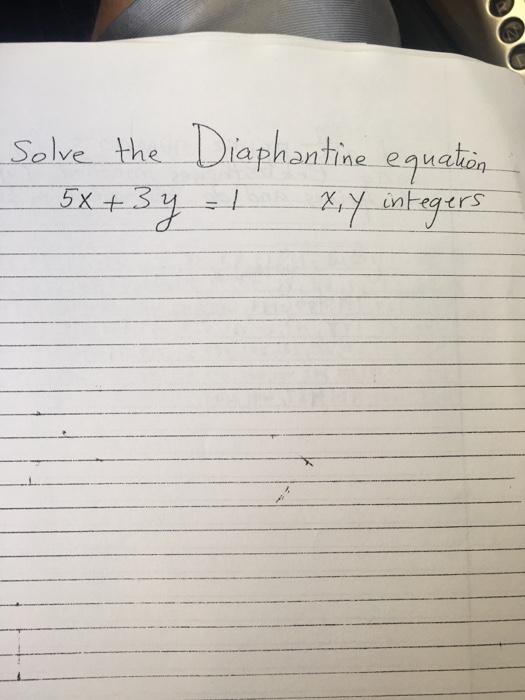 Solve the Diaphantine equation
5x + 3y = 1 x, y integers